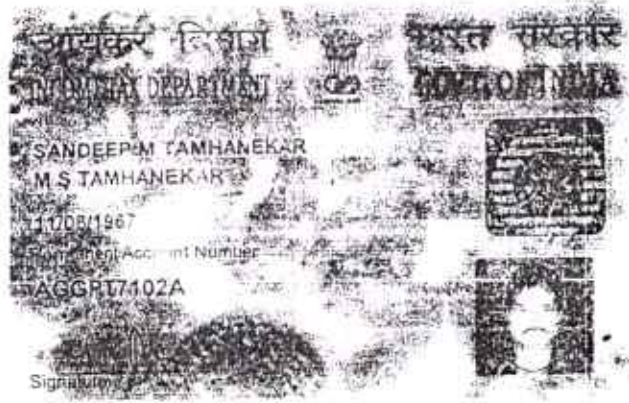 आयकर विभाग
भारत सरकार
INCOME TAX DEPARTMENT
GOVT. OF INDIA
SANDEEP M TAMHANEKAR
M S TAMHANEKAR
11/08/1967
Permanent Account Number
AGGPT7102A
Signature